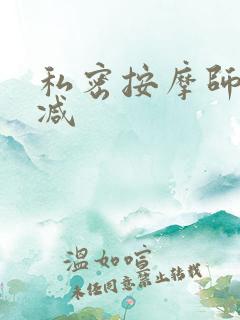 私密按摩師
减
溫如喧
未经同意禁止转载